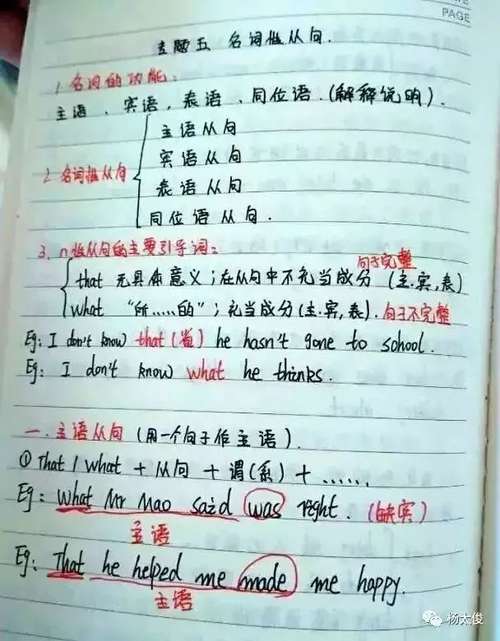 PAGE
专题五 名词性从句.
1. 名词的功能:
主语、宾语、表语、同位语.(解释说明).
主语从句
宾语从句
2. 名词性从句
表语从句
同位语从句.
3. n性从句的主要引导词:
句子完整
that 无具体意义;在从句中不充当成分(主.宾,表)
what “所……的”;充当成分(主.宾,表).句子不完整
Eg: I don't know that (省) he hasn't gone to school.
Eg: I don't know what he thinks.
一.主语从句(用一个句子作主语).
① That / what + 从句 + 谓(系) + ……
Eg: What Mr Mao said was right. (缺宾)
主语
Eg: That he helped me made me happy.
主语
杨太俊